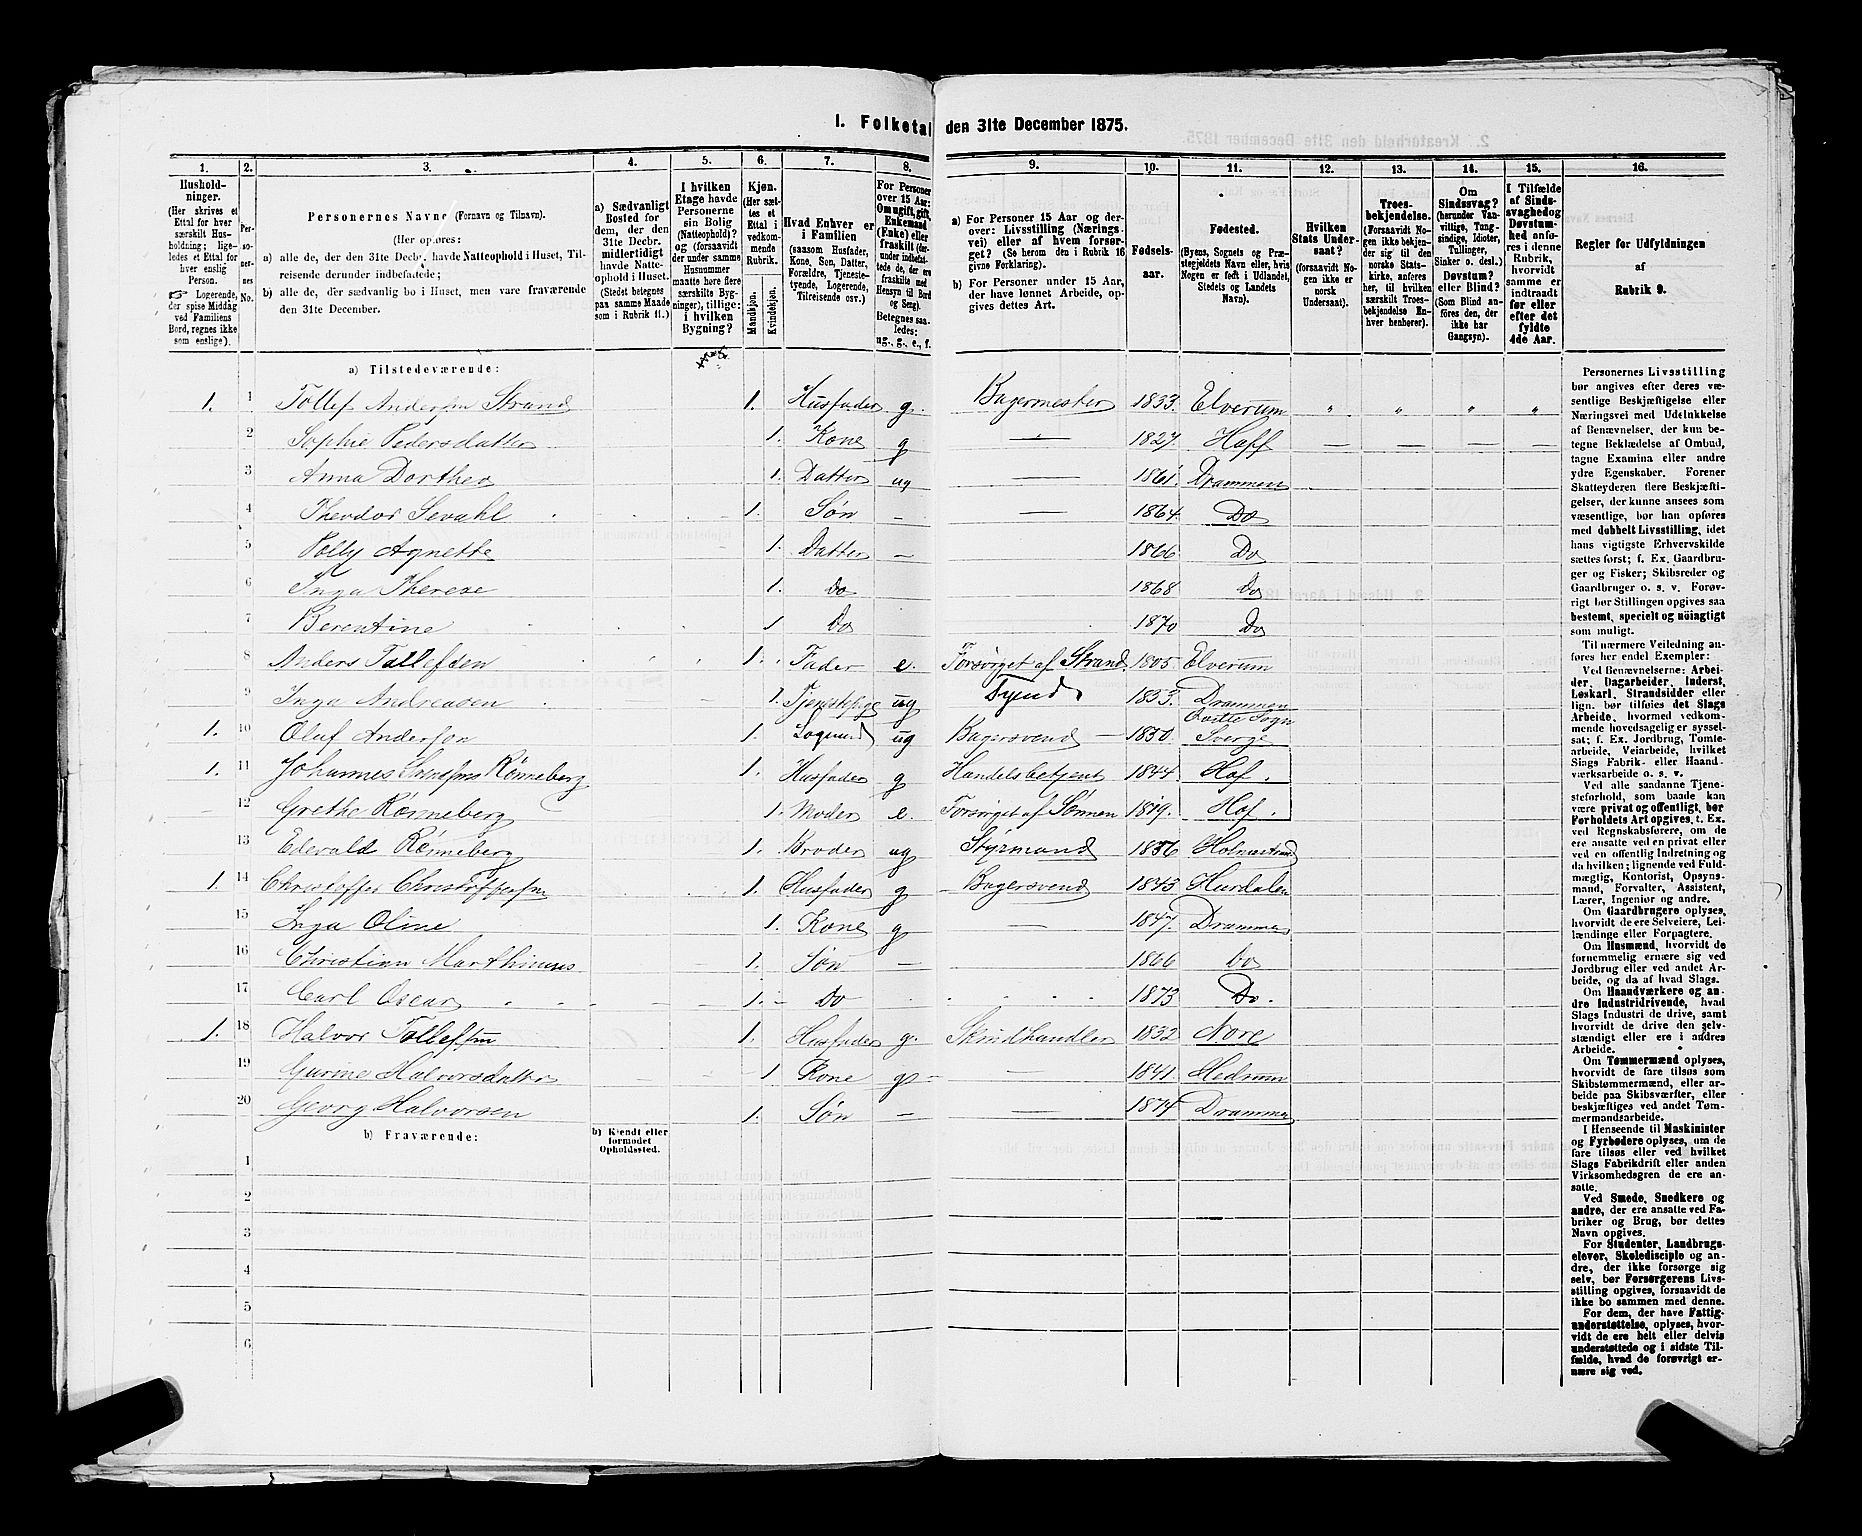 I. Folketal den 31te December 1875.
1. 2. 3. 4. 5. 6. 7. 8. 9. 10. 11. 12. 13. 14. 15. 16.
Hushold-
ninger.
(Her skrives et
Ettal for hver
særskilt Hus-
holdning; lige-
ledes et Ettal for
hver enslig
Person.
☞ Logerende,
der spise Middag
ved Familiens
Bord, regnes ikke
som enslige).
Per-
so-
ner-
nes
No.
Personernes Navne (Fornavn og Tilnavn).
(Her opføres:
a) alle de, der den 31te Decbr. havde Natteophold i Huset, Til-
reisende derunder indbefattede;
b) alle de, der sædvanlig bo i Huset, men vare fraværende
den 31te December.
a) Sædvanligt
Bosted for
dem, der den
31te Decbr.
midlertidigt
havde Natte-
ophold i Huset.
(Stedet betegnes
paa samme Maade
som i Rubrik 11.)
I hvilken
Etage havde
Personerne
sin Bolig
(Natteophold)?
og (forsaavidt
der under samme
Husnummer
maatte høre flere
særskilte Byg-
ninger), tillige:
i hvilken
Bygning?
Kjøn.
(Her sæt-
tes et
Ettal i
vedkom-
mende
Rubrik.
Mandkjøn.
Kvindekjøn.
Hvad Enhver er
i Familien
(saasom Husfader,
Kone, Søn, Datter,
Forældre, Tjeneste-
tyende, Logerende,
Tilreisende osv.)
For Personer
over 15 Aar:
Om ugift, gift,
Enkemand
(Enke) eller
fraskilt (der-
under indbefat-
tede de, der ere
fraskilte med
Hensyn til Bord
og Seng).
Betegnes saa-
ledes:
ug., g., e., f.
a) For Personer 15 Aar og der-
over: Livsstilling (Nærings-
vei) eller af hvem forsør-
get? (Se herom den i Rubrik 16
givne Forklaring).
b) For Personer under 15 Aar,
der have lønnet Arbeide, op-
gives dettes Art.
Fødsels-
aar.
Fødested.
(Byens, Sognets og Præ-
stegjeldets Navn eller, hvis
Nogen er født i Udlandet,
Stedets og Landets
Navn).
Hvilken
Stats Under-
saat?
(forsaavidt No-
gen ikke er
norsk
Undersaat).
Troes-
bekjendelse.
(Forsaavidt No-
gen ikke bekjen-
der sig til den
norske Stats-
kirke, anføres
her, til hvilket
særskilt Troes-
bekjendelse En-
hver henhører).
Om
Sindssvag?
(herunder Van-
vittige, Tung-
sindige, Idioter,
Tullinger,
Sinker o. desl.)
Døvstum?
eller Blind?
(Som Blind an-
føres den, der
ikke har
Gangsyn).
I Tilfælde
af Sinds-
svaghed og
Døvstum-
hed anfø-
res i denne
Rubrik,
hvorvidt
samme er
indtraadt
før eller
efter det
fyldte
4de Aar.
Regler for Udfyldningen
af
Rubrik 9.
a) Tilstedeværende:
1. 1 Tollef Andersen Strand 1. Husfader g. Bagermester 1833. Elverum " " " "
2 Sophie Pedersdatter 1. Kone g — 1827. Hoff — — — —
3 Anna Dorthea 1. Datter ug — 1861. Drammen
4 Theodor Sevahl 1. Søn — — 1864. Do
5 Polly Agnette 1. Datter — 1866. Do
6 Inga Therese 1. Do 1868 Do
7 Berentine 1 Do 1870 Do
8 Anders Tollefsen 1. Fader e. Forsørget af Strand. 1805. Elverum
9 Inga Andreasen 1. Tjenstepige ug Tyende 1853. Drammen
1. 10 Oluf Andersson 1. Logerende ug Bagersvend — 1850. Sverge
1. 11 Johannes Rønneberg 1. Husfader g Handelsbetjent 1844. Hof.
12 Grethe Rønneberg 1. Moder e. Forsørget af Sønnen 1819. Hof.
13 Edevald Rønneberg 1. Broder ug Styrmand 1856 Holmestrand
1. 14 Christoffer Christoffersen 1. Husfader g Bagersvend 1843 Hurdalen
15 Inga Oline 1. Kone g — 1847. Drammen
16 Christian Marthinus 1. Søn — 1866 Do
17 Carl Oscar 1. Do 1873 Do.
1. 18 Halvor Tollefsen 1. Husfader g. Skindhandler 1832 Nore
19 Gurine Halvorsdatter 1. Kone g — 1841. Hedrum
20 Georg Halvorsen 1. Søn — — 1874 Drammen
b) Fraværende:
b) Kjendt eller
formodet
Opholdssted.
1
2
3
4
5
6
Personernes Livsstilling
bør angives efter deres væ-
sentlige Beskjæftigelse eller
Næringsvei med Udelukkelse
af Benævnelser, der kun be-
tegne Beklædelse af Ombud,
tagne Examina eller andre
ydre Egenskaber. Forener
Skatteyderen flere Beskjæfti-
gelser, der kunne ansees som
væsentlige, bør han opføres
med dobbelt Livsstilling, idet
hans vigtigste Erhvervskilde
sættes først; f. Ex. Gaardbru-
ger og Fisker; Skibsreder og
Gaardbruger o. s. v. Forøv-
rigt bør Stillingen opgives saa
bestemt, specielt og nöiagtigt
som muligt.
Til nærmere Veiledning an-
føres her endel Exempler:
Ved Benævnelserne: Arbei-
der, Dagarbeider, Inderst,
Løskarl, Strandsidder eller
lign. bør tilføies det Slags
Arbeide, hvormed vedkom-
mende hovedsagelig er syssel-
sat; f. Ex. Jordbrug, Tomte-
arbeide, Veiarbeide, hvilket
Slags Fabrik- eller Haand-
værksarbeide o. s. v.
Ved alle saadanne Tjene-
steforhold, som baade kan
være privat og offentligt, bør
Forholdets Art opgives, t. Ex.
ved Regnskabsførere, om de
ere ansatte ved en privat eller
ved en offentlig Indretning og
da hvilken; lignende ved Fuld-
mægtig, Kontorist, Opsyns-
mand, Forvalter, Assistent,
Lærer, Ingeniør og andre.
Om Gaardbrugere oplyses,
hvorvidt de ere Selveiere, Lei-
lændinge eller Forpagtere.
Om Husmænd, hvorvidt de
fornemmelig ernære sig ved
Jordbrug eller ved andet Ar-
beide, og da af hvad Slags.
Om Haandværkere og an-
dre Industridrivende, hvad
Slags Industri de drive, samt
hvorvidt de drive den selv-
stændigt eller ere i andres
Arbeide.
Om Tømmermænd oplyses,
hvorvidt de fare tilsøs som
Skibstømmermænd, eller ar-
beide paa Skibsværfter, eller
beskjæftiges ved andet Tøm-
mermandsarbeide.
I Henseende til Maskinister
og Fyrbødere oplyses, om de
fare tilsøs eller ved hvilket
Slags Fabrikdrift eller anden
Virksomhedsgren de ere an-
satte.
Ved Smede, Snedkere og
andre, der ere ansatte ved Fa-
briker og Brug, bør dettes
Navn opgives.
For Studenter, Landbrugs-
elever, Skoledisciple og an-
dre, der ikke forsørge sig
selv, bør Forsørgerens Livs-
stilling opgives, forsaavidt de
ikke bo sammen med denne.
For dem, der have Fattig-
understøttelse, oplyses, hvor-
vidt de ere helt eller delvis
understøttede og i sidste Til-
fælde, hvad de forøvrigt er-
nære sig ved.